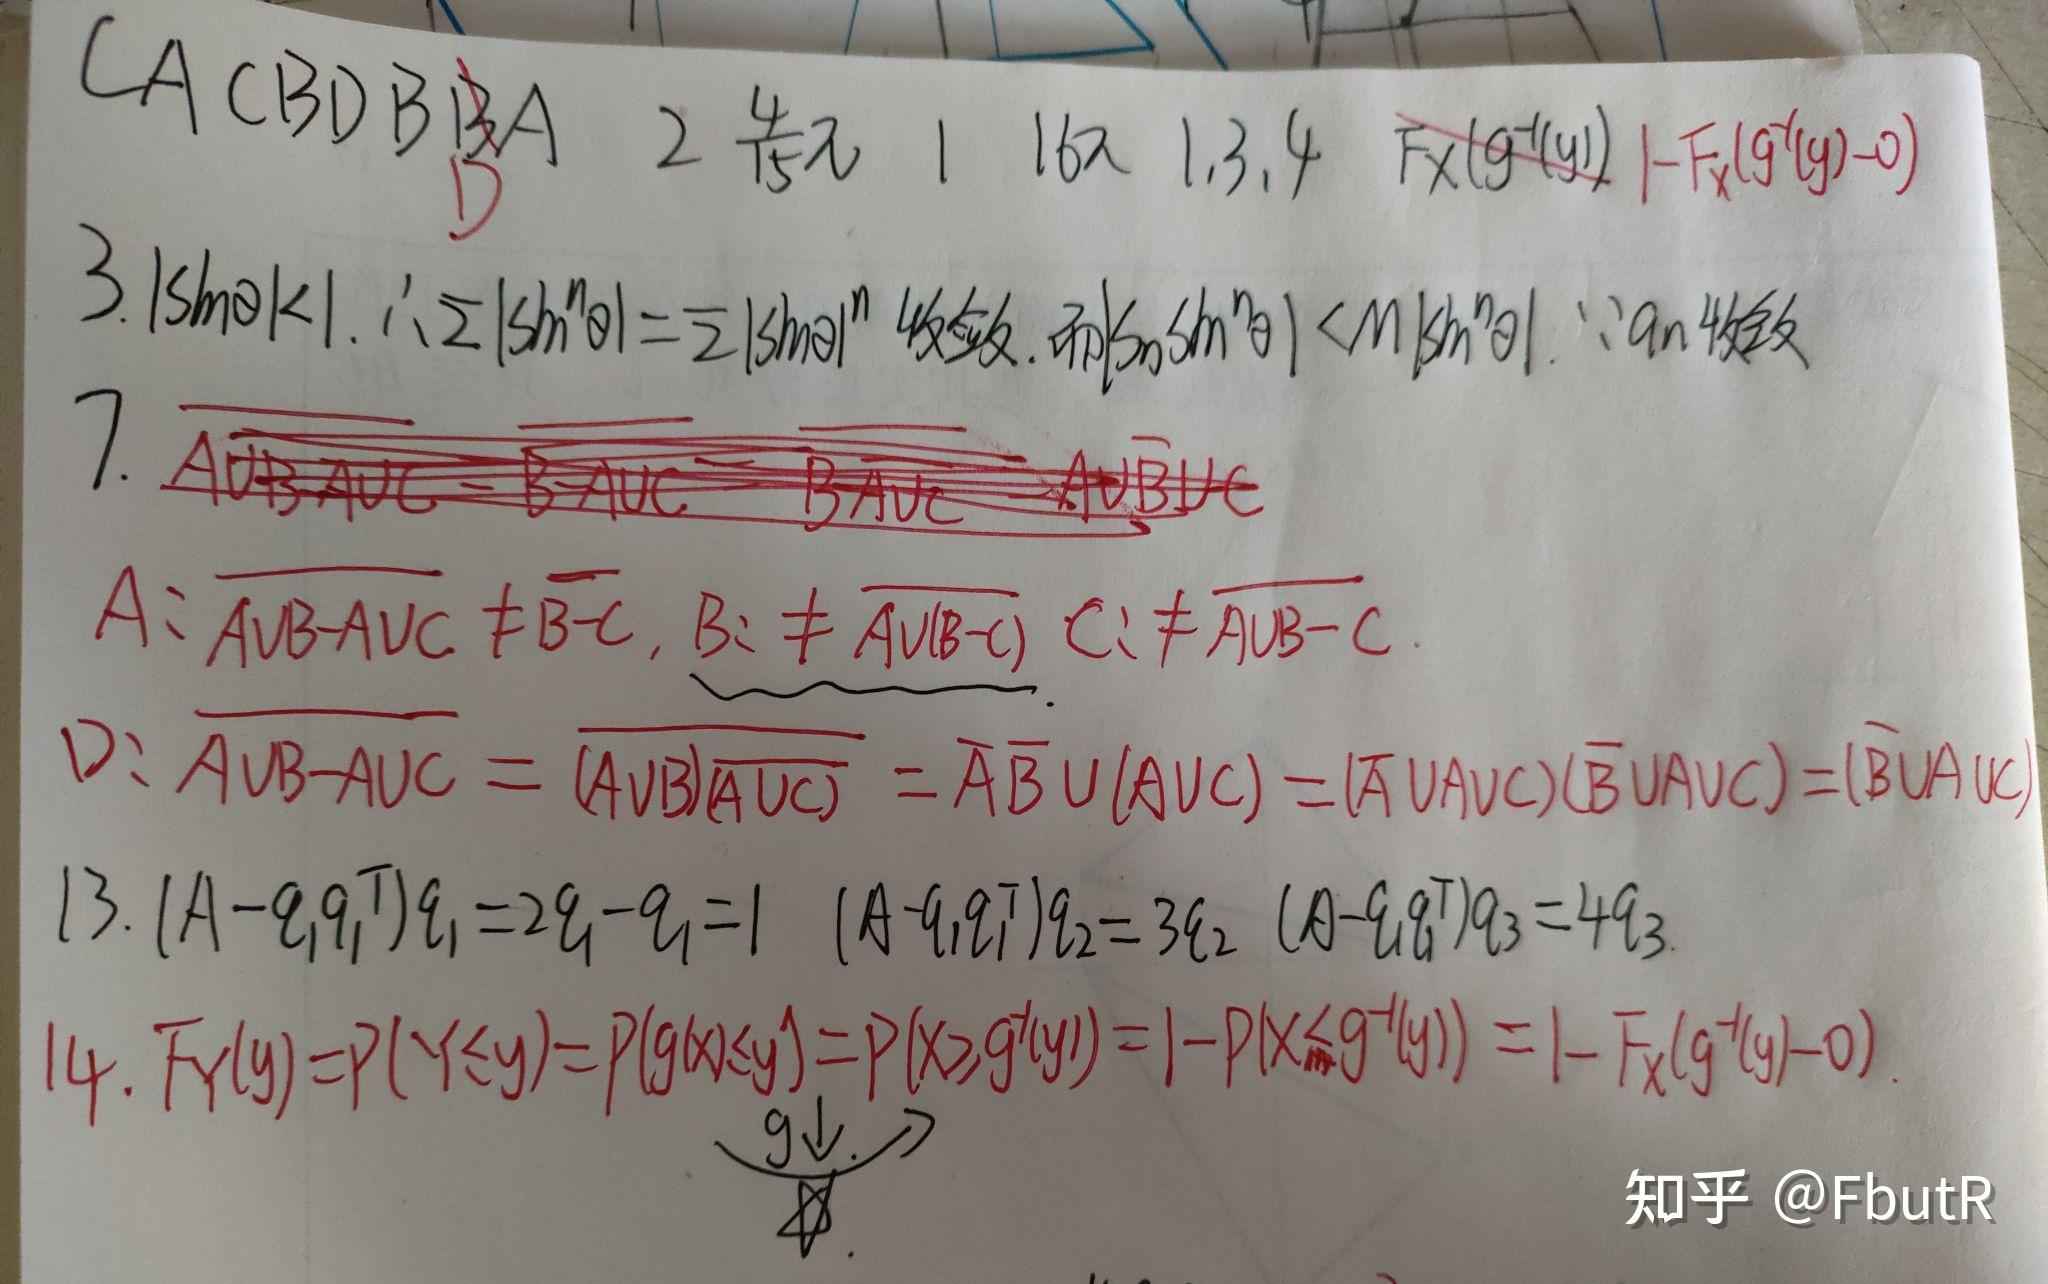 CACBDBBA 2 4/15π 1 16π 1,3,4 Fx(g⁻¹(y)) 1-Fx(g⁻¹(y)-0)
D
3. |sinθ|<1. ∴Σ|sinⁿθ|=Σ|sinθ|ⁿ 收敛. 而|Sn sinⁿθ|<M|sinⁿθ|. ∵an收敛
7. A∪B-A∪C = B-A∪C = B A∪C = A∪B̅∪C
A: \overline{A∪B-A∪C} ≠ \overline{B-C}, B: ≠ \overline{A∪(B-C)} C: ≠ \overline{A∪B-C}.
D: \overline{A∪B-A∪C} = \overline{(A∪B)\overline{(A∪C)}} = A̅B̅∪(A∪C) = (A̅∪A∪C)(B̅∪A∪C) = (B̅∪A∪C)
13. (A-q₁q₁ᵀ)q₁=2q₁-q₁=1 (A-q₁q₁ᵀ)q₂=3q₂ (A-q₁q₁ᵀ)q₃=4q₃.
14. F_Y(y)=P(Y≤y)=P(g(x)≤y)=P(X≥g⁻¹(y))=1-P(X≤g⁻¹(y))=1-Fx(g⁻¹(y)-0).
g↓.
知乎 @FbutR